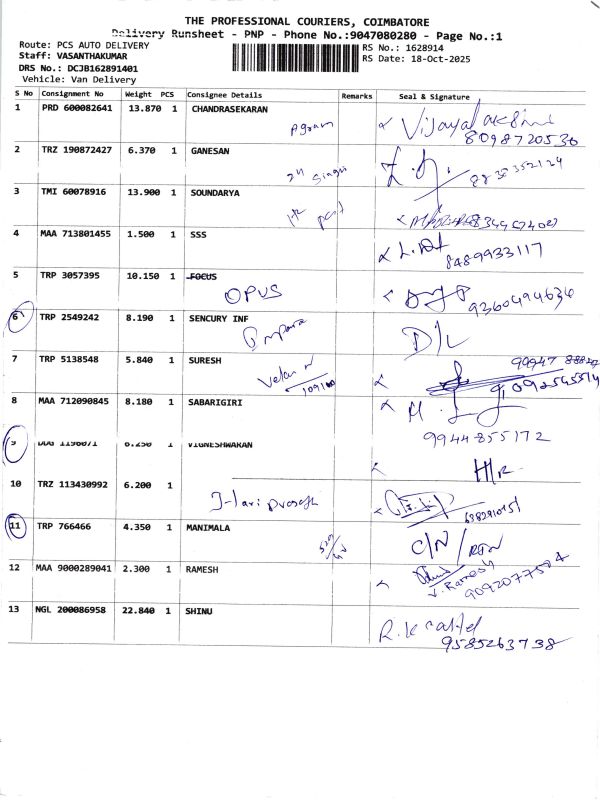 THE PROFESSIONAL COURIERS, COIMBATORE
Delivery Runsheet - PNP - Phone No.:9047080280 - Page No.:1
Route: PCS AUTO DELIVERY
RS No.: 1628914
Staff: VASANTHAKUMAR
RS Date: 18-Oct-2025
DRS No.: DCJB162891401
Vehicle: Van Delivery
S No Consignment No Weight PCS Consignee Details Remarks Seal & Signature
1 PRD 600082641 13.870 1 CHANDRASEKARAN
8098720530
2 TRZ 190872427 6.370 1 GANESAN
3 TMI 60078916 13.900 1 SOUNDARYA
4 MAA 713801455 1.500 1 SSS
8489933117
5 TRP 3057395 10.150 1 FOCUS
OPUS
9360494634
6 TRP 2549242 8.190 1 SENCURY INF
D/L
7 TRP 5138548 5.840 1 SURESH
8 MAA 712090845 8.180 1 SABARIGIRI
9944855172
9 6.250 1 VIGNESHWARAN
H/R
10 TRZ 113430992 6.200 1
11 TRP 766466 4.350 1 MANIMALA
C/N / RTN
12 MAA 9000289041 2.300 1 RAMESH
V. Ramesh
9092077584
13 NGL 200086958 22.840 1 SHINU
9585263738